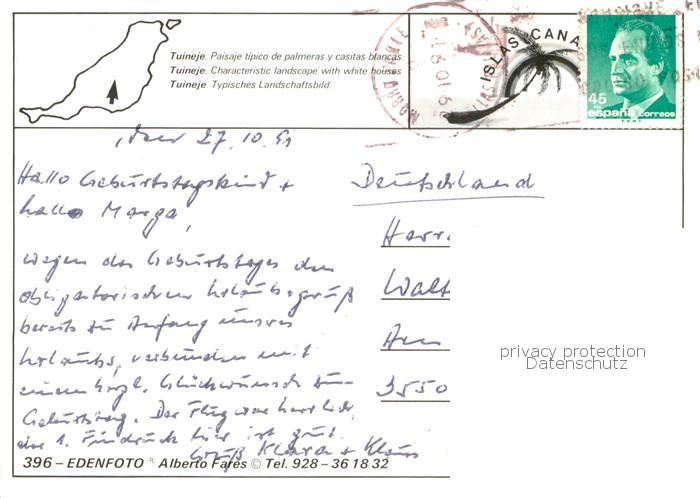 Tuineje. Paisaje típico de palmeras y casitas blancas.
Tuineje. Characteristic landscape with white houses
Tuineje. Typisches Landschaftsbild.
ISLAS CANA
45
españa correos
, den 27.10.91
Hallo Geburtstagskind +
hallo Marga,
wegen des Geburtstages den
obligatorischen Urlaubsgruß
bereits zu Anfang unseres
Urlaubs, verbunden mit
einem herzl. Glückwunsch zum
Geburtstag. Der Flug war herrlich,
der 1. Eindruck hier ist gut.
Gruß Klara + Klaus
Deutschland
Herr
Walt
Am
3550
privacy protection
Datenschutz
396 – EDENFOTO ® Alberto Fares © Tel. 928 – 36 18 32